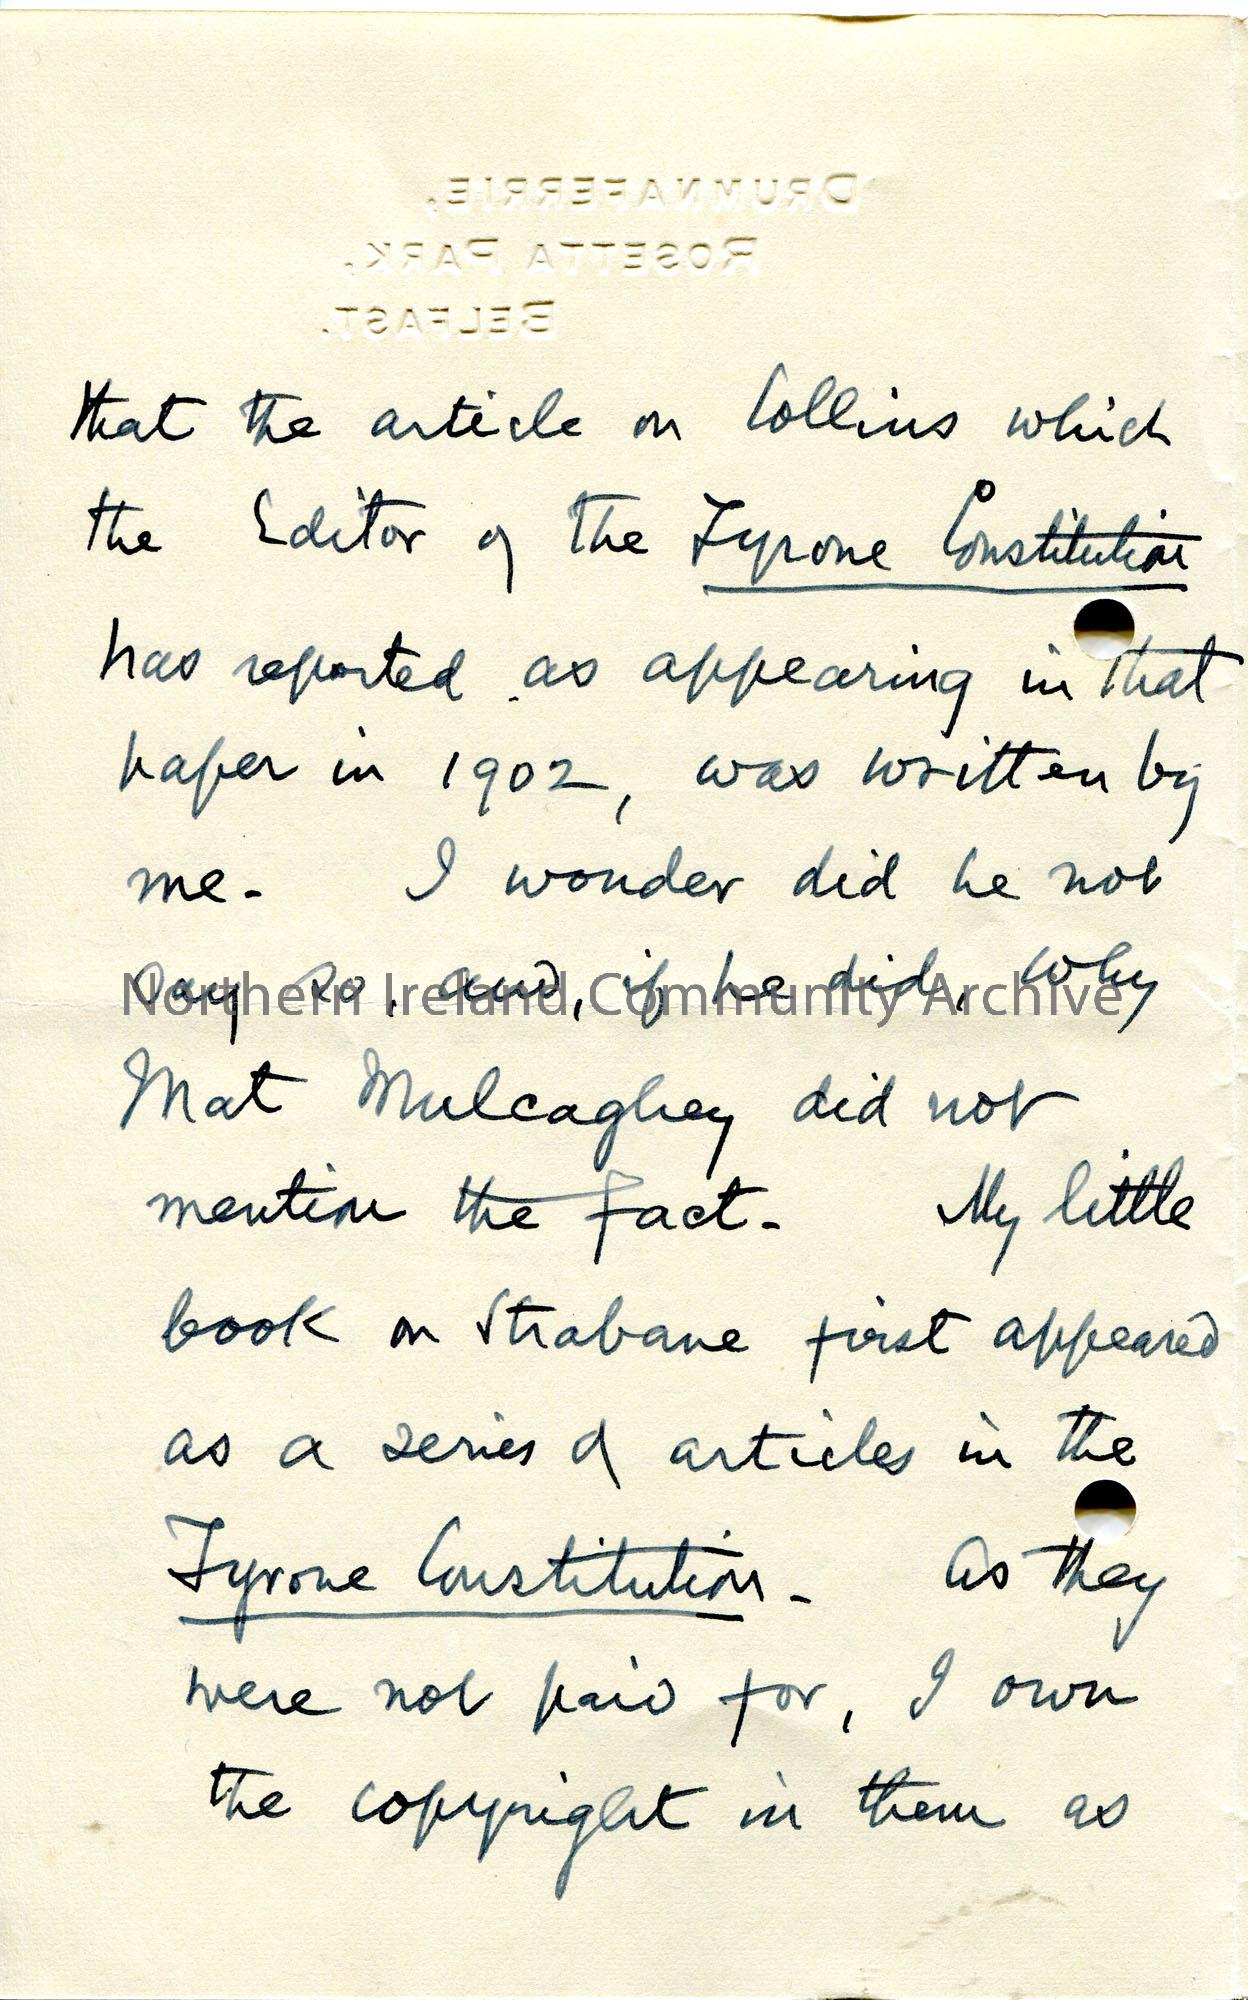 DRUMNAFERRIE,
ROSETTA PARK,
BELFAST.
that the article on Collins which
the Editor of the Tyrone Constitution
has reported as appearing in that
paper in 1902, was written by
me. I wonder did he not
say so, and, if he did, why
Northern Ireland Community Archive
Mat Mulcaghey did not
mention the fact. My little
book on Strabane first appeared
as a series of articles in the
Tyrone Constitution. As they
were not paid for, I own
the copyright in them as